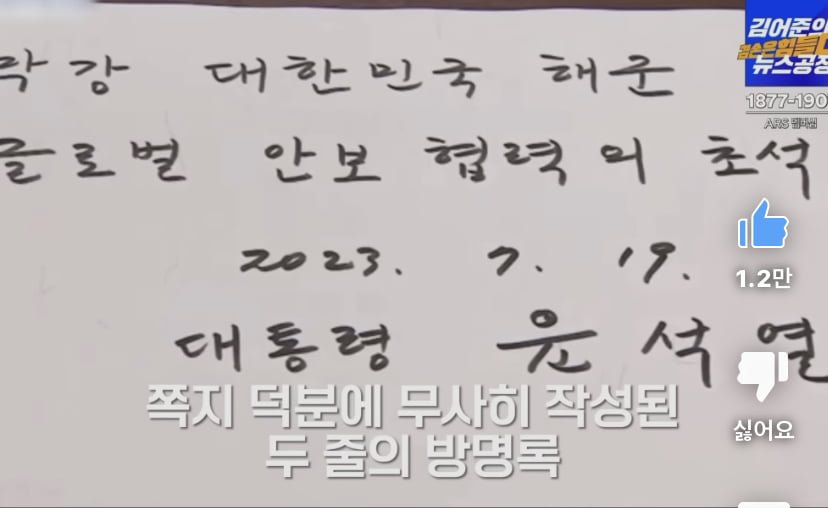 막강 대한민국 해군
글로벌 안보 협력의 초석
2023. 7. 19.
대통령 윤석열
쪽지 덕분에 무사히 작성된
두 줄의 방명록
김어준의
겸손은힘들다
뉴스공장
1877-190
ARS 멤버십
1.2만
싫어요